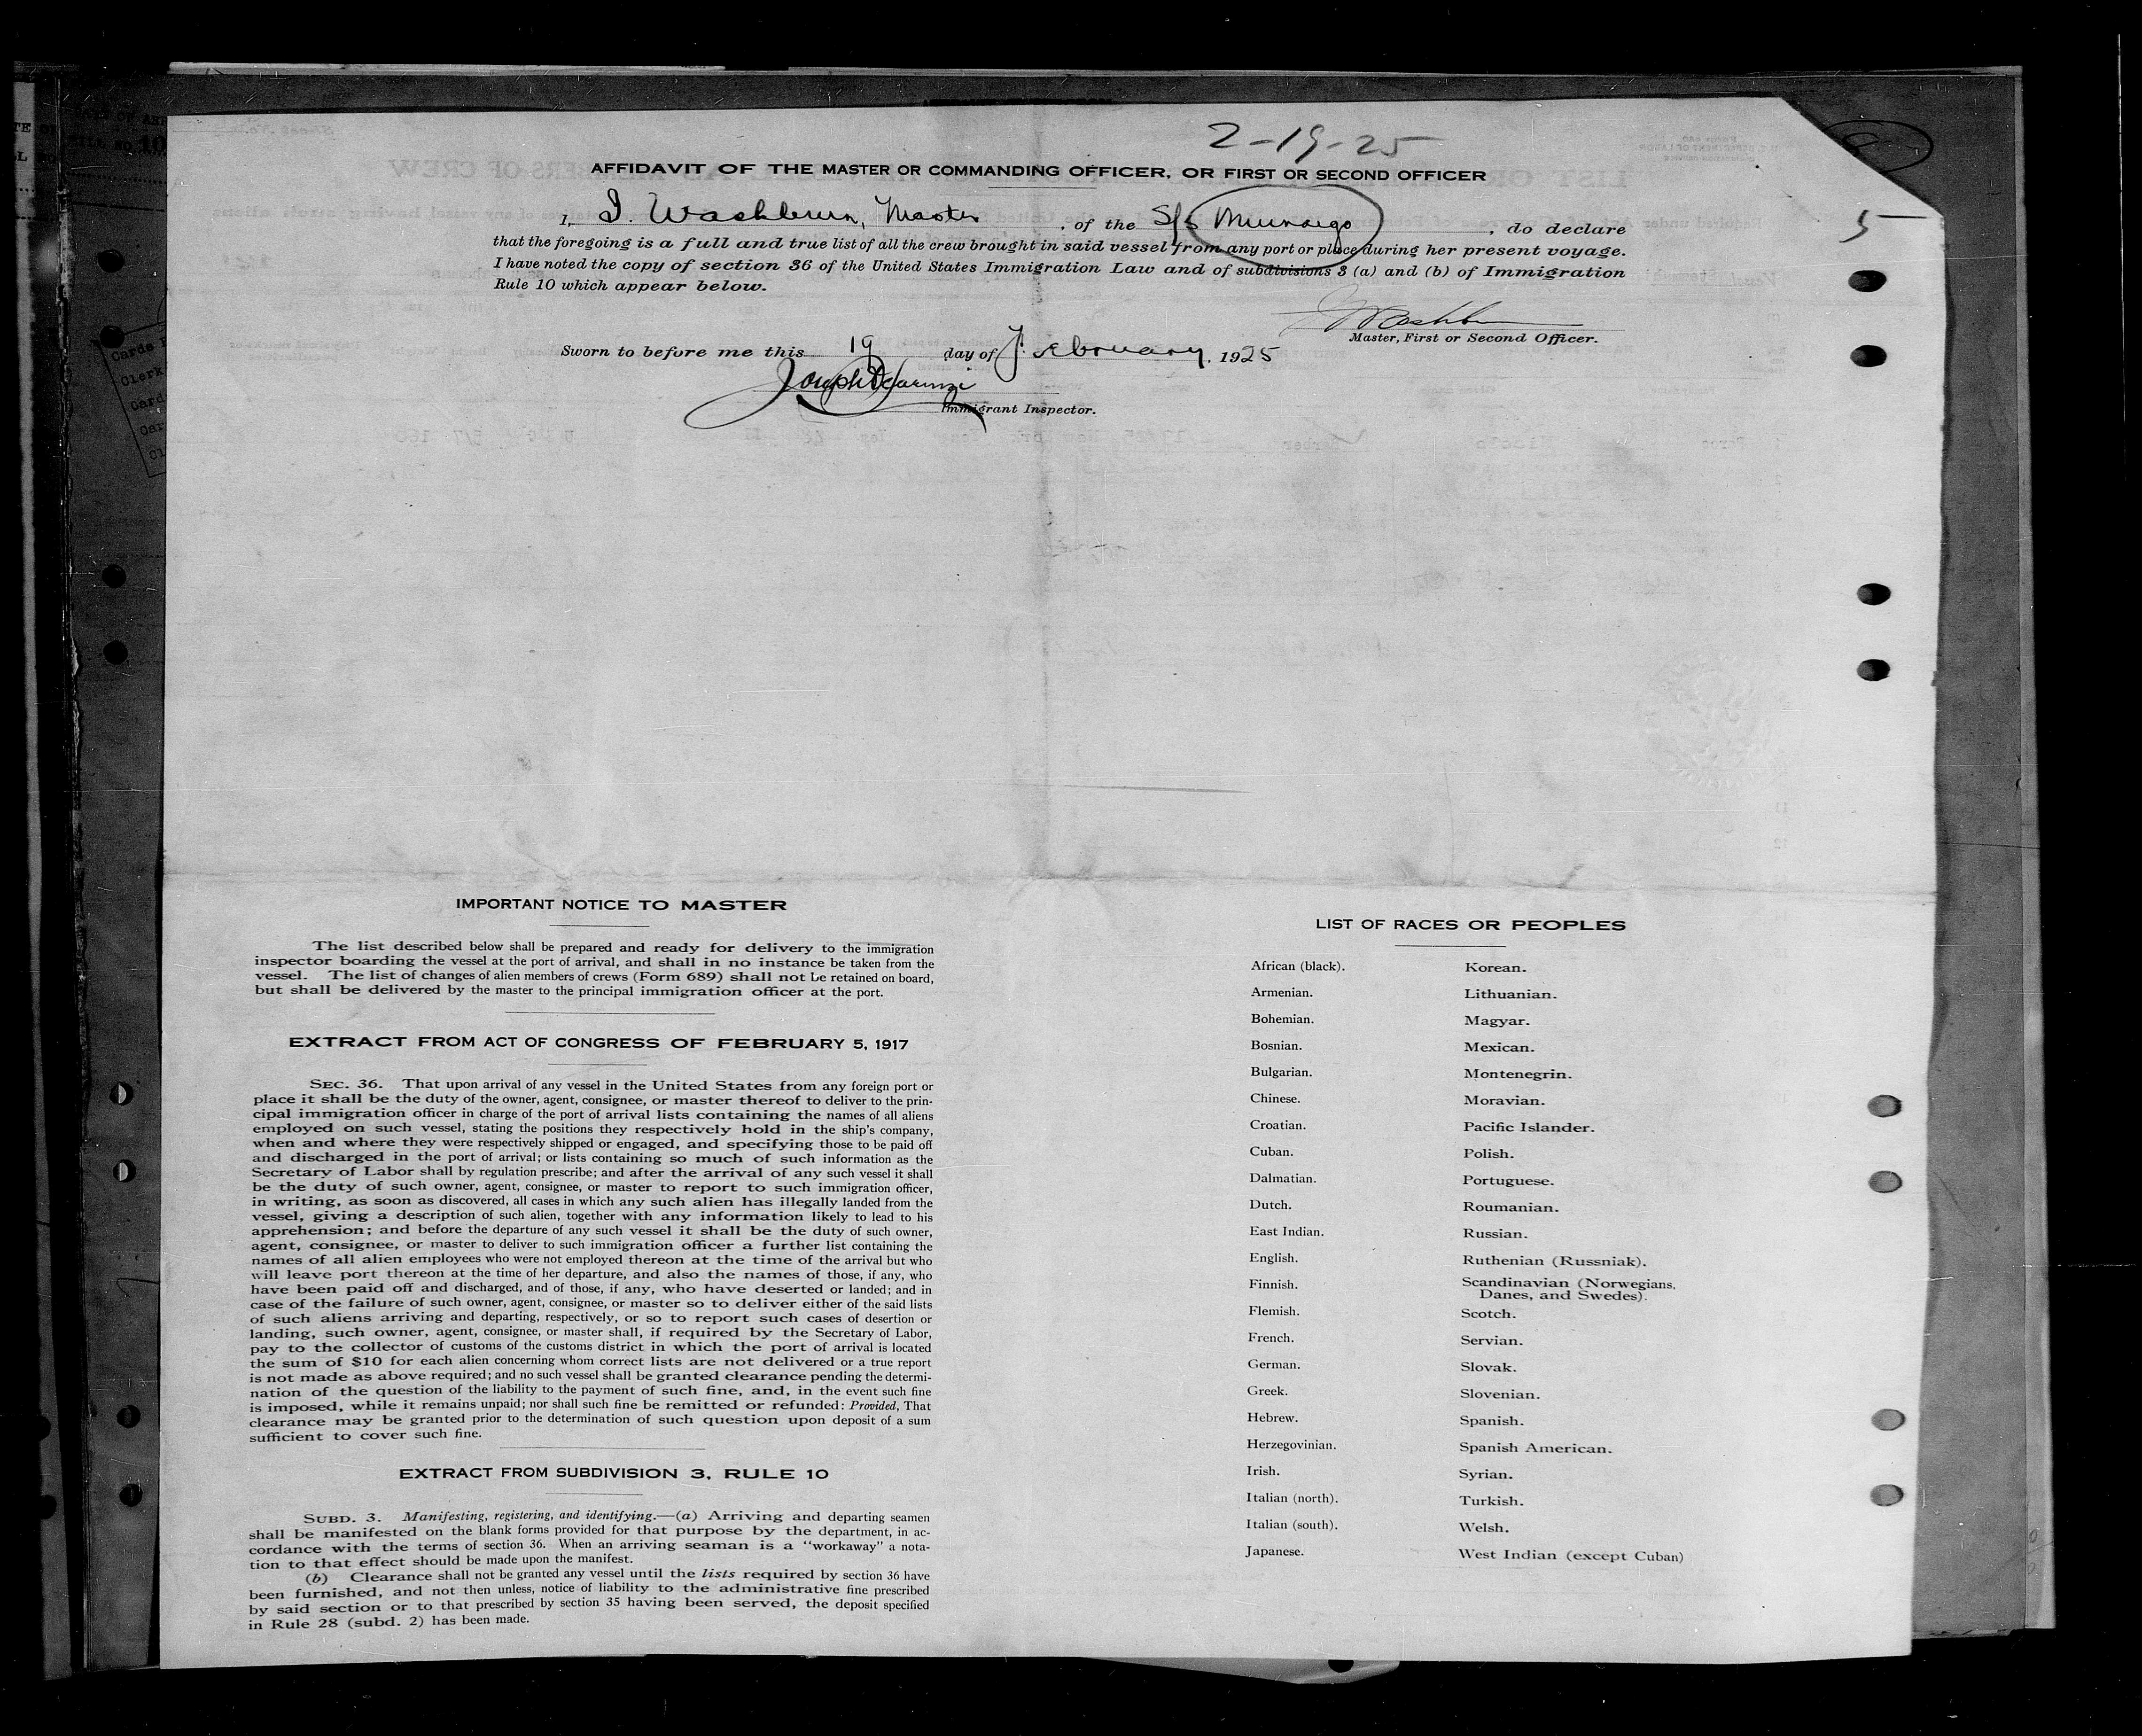 2-19-25
AFFIDAVIT OF THE MASTER OR COMMANDING OFFICER, OR FIRST OR SECOND OFFICER
5
I, I. Washburn, Master, of the S/S Munargo, do declare
that the foregoing is a full and true list of all the crew brought in said vessel from any port or place during her present voyage.
I have noted the copy of section 36 of the United States Immigration Law and of subdivisions 3 (a) and (b) of Immigration
Rule 10 which appear below.
Washburn
Master, First or Second Officer.
Sworn to before me this 19 day of February, 1925
Joseph
Immigrant Inspector.
IMPORTANT NOTICE TO MASTER
The list described below shall be prepared and ready for delivery to the immigration
inspector boarding the vessel at the port of arrival, and shall in no instance be taken from the
vessel. The list of changes of alien members of crews (Form 689) shall not be retained on board,
but shall be delivered by the master to the principal immigration officer at the port.
EXTRACT FROM ACT OF CONGRESS OF FEBRUARY 5, 1917
SEC. 36. That upon arrival of any vessel in the United States from any foreign port or
place it shall be the duty of the owner, agent, consignee, or master thereof to deliver to the prin-
cipal immigration officer in charge of the port of arrival lists containing the names of all aliens
employed on such vessel, stating the positions they respectively hold in the ship's company,
when and where they were respectively shipped or engaged, and specifying those to be paid off
and discharged in the port of arrival; or lists containing so much of such information as the
Secretary of Labor shall by regulation prescribe; and after the arrival of any such vessel it shall
be the duty of such owner, agent, consignee, or master to report to such immigration officer,
in writing, as soon as discovered, all cases in which any such alien has illegally landed from the
vessel, giving a description of such alien, together with any information likely to lead to his
apprehension; and before the departure of any such vessel it shall be the duty of such owner,
agent, consignee, or master to deliver to such immigration officer a further list containing the
names of all alien employees who were not employed thereon at the time of the arrival but who
will leave port thereon at the time of her departure, and also the names of those, if any, who
have been paid off and discharged, and of those, if any, who have deserted or landed; and in
case of the failure of such owner, agent, consignee, or master so to deliver either of the said lists
of such aliens arriving and departing, respectively, or so to report such cases of desertion or
landing, such owner, agent, consignee, or master shall, if required by the Secretary of Labor,
pay to the collector of customs of the customs district in which the port of arrival is located
the sum of $10 for each alien concerning whom correct lists are not delivered or a true report
is not made as above required; and no such vessel shall be granted clearance pending the determi-
nation of the question of the liability to the payment of such fine, and, in the event such fine
is imposed, while it remains unpaid; nor shall such fine be remitted or refunded: Provided, That
clearance may be granted prior to the determination of such question upon deposit of a sum
sufficient to cover such fine.
EXTRACT FROM SUBDIVISION 3, RULE 10
SUBD. 3. Manifesting, registering, and identifying.—(a) Arriving and departing seamen
shall be manifested on the blank forms provided for that purpose by the department, in ac-
cordance with the terms of section 36. When an arriving seaman is a "workaway" a nota-
tion to that effect should be made upon the manifest.
(b) Clearance shall not be granted any vessel until the lists required by section 36 have
been furnished, and not then unless, notice of liability to the administrative fine prescribed
by said section or to that prescribed by section 35 having been served, the deposit specified
in Rule 28 (subd. 2) has been made.
LIST OF RACES OR PEOPLES
African (black).
Armenian.
Bohemian.
Bosnian.
Bulgarian.
Chinese.
Croatian.
Cuban.
Dalmatian.
Dutch.
East Indian.
English.
Finnish.
Flemish.
French.
German.
Greek.
Hebrew.
Herzegovinian.
Irish.
Italian (north).
Italian (south).
Japanese.
Korean.
Lithuanian.
Magyar.
Mexican.
Montenegrin.
Moravian.
Pacific Islander.
Polish.
Portuguese.
Roumanian.
Russian.
Ruthenian (Russniak).
Scandinavian (Norwegians,
Danes, and Swedes).
Scotch.
Servian.
Slovak.
Slovenian.
Spanish.
Spanish American.
Syrian.
Turkish.
Welsh.
West Indian (except Cuban)